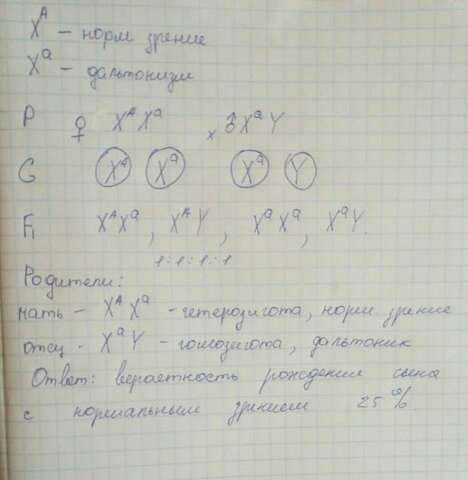 X^A – норм зрение
X^a – дальтонизм
P ♀ X^A X^a × ♂ X^a Y
G X^A X^a X^a Y
F₁ X^A X^a, X^A Y, X^a X^a, X^a Y.
1:1:1:1
Родители:
мать – X^A X^a – гетерозигота, норм зрение
отец - X^a Y – гомозигота, дальтоник
Ответ: вероятность рождения сына
с нормальным зрением 25%